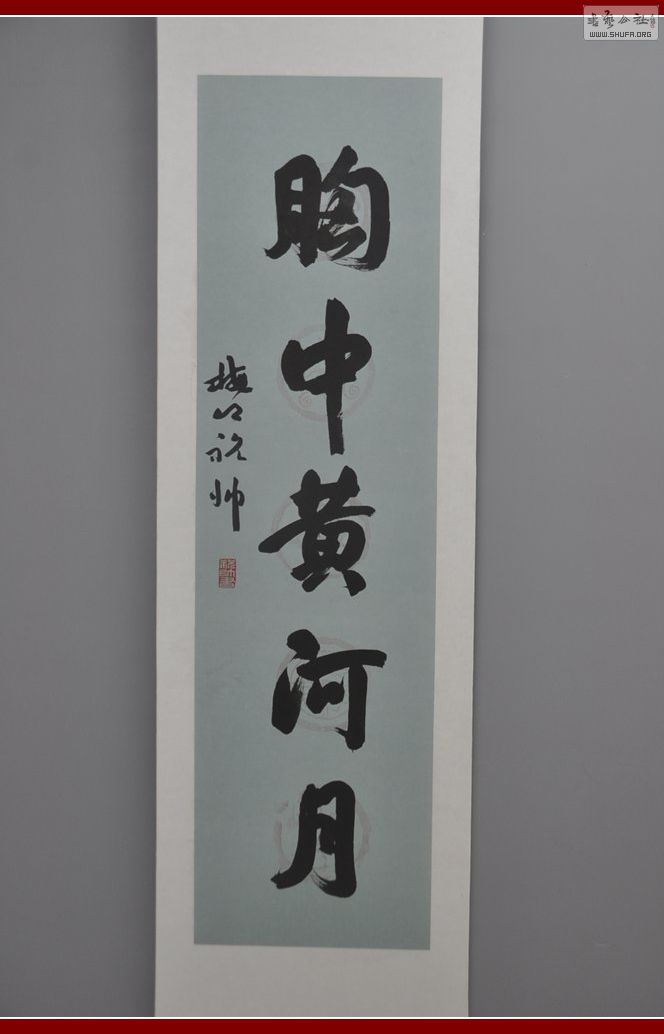 胸中黄河月
祝帅
書藝公社
WWW.SHUFA.ORG